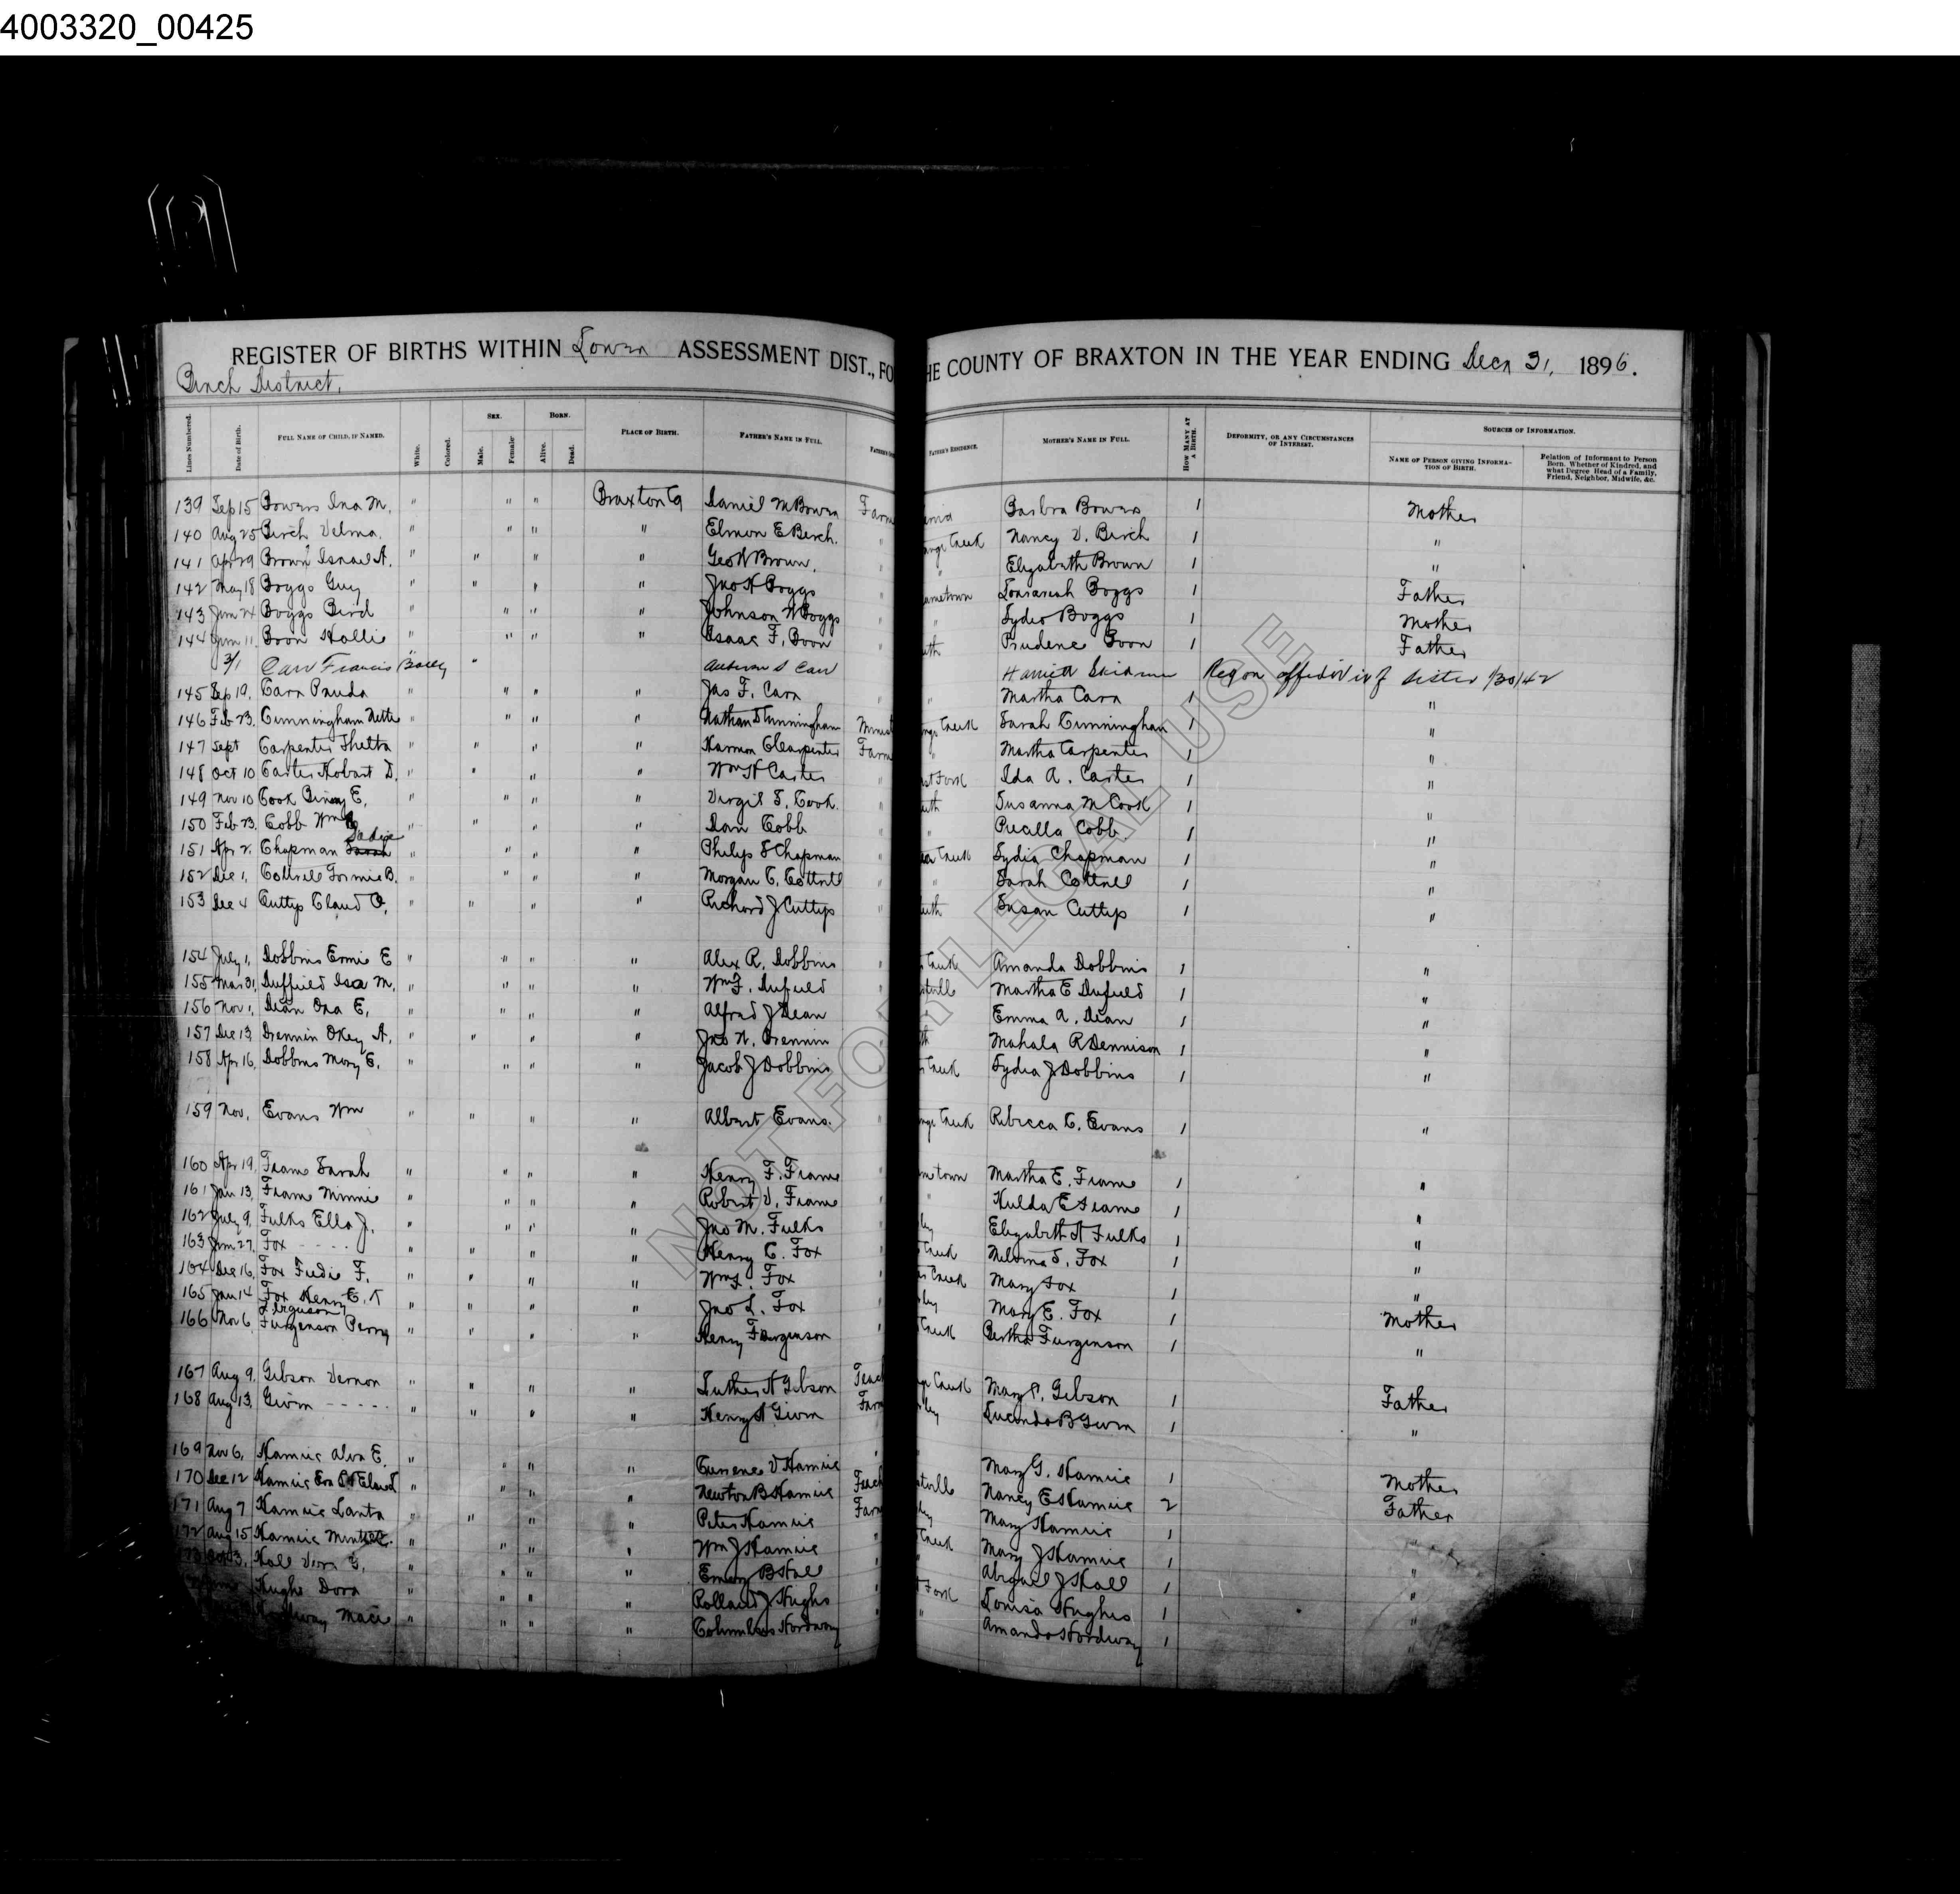 4003320_00425
REGISTER OF BIRTHS WITHIN Lower ASSESSMENT DIST., FO HE COUNTY OF BRAXTON IN THE YEAR ENDING Decr 31, 1896.
Birch District.
Lines Numbered. Date of Birth. FULL NAME OF CHILD, IF NAMED. White. Colored. SEX. Male. Female. BORN. Alive. Dead. PLACE OF BIRTH. FATHER'S NAME IN FULL. FATHER'S RESIDENCE. MOTHER'S NAME IN FULL. HOW MANY AT A BIRTH. DEFORMITY, OR ANY CIRCUMSTANCES OF INTEREST. SOURCES OF INFORMATION. NAME OF PERSON GIVING INFORMATION OF BIRTH. Relation of Informant to Person Born. Whether of Kindred, and what Degree Head of a Family, Friend, Neighbor, Midwife, &c.
139 Sep 15 Bowers Ina M. " " " Braxton Co Daniel M Bowers Farm Barbra Bowers 1 Mother
140 Aug 25 Birch Velma. " " " " Elmon E Birch. " Creek Nancy V. Birch 1 "
141 Apr 29 Brown Israel A. " " " " Geo W Brown. " " Elizabeth Brown 1 "
142 May 18 Boggs Guy " " " " Jno H Boggs " ametown Boggs 1 Father
143 Jun 24 Boggs Bird " " " " Johnson W Boggs " " Lydia Boggs 1 Mother
144 Jun 11. Boon Hallie " " " " Isaac F. Boon " Prudence Boon 1 Father
3/1 Carr Francis " " Carr Harriett Skidmore Reg on affidavit of sister 1/30/42
145 Sep 19. Carr " " " " Jas F. Carr " " Martha Carr 1 "
146 Feb 23. Cunningham Nettie " " " " Nathan S Cunningham Minist Creek Sarah Cunningham 1 "
147 Sept Carpenter " " " " Harmon C Carpenter Farm " Martha Carpenter 1 "
148 Oct 10 Carter Hobart D. " " " " Wm H Carter " Fork Ida A. Carter 1 "
149 Nov 10 Cook E. " " " " Virgil S. Cook. " Susanna M Cook 1 "
150 Feb 23. Cobb Wm " " " " Dan Cobb " " Cobb 1 "
Sadie
151 Apr 2. Chapman Sarah " " " " Philip S Chapman " Creek Lydia Chapman 1 "
152 Dec 1, Cottrell B. " " " " Morgan C. Cottrell " " Sarah Cottrell 1 "
153 Dec 4 Cuttip Claud O. " " " " Richard J Cuttip " Susan Cuttip 1 "
154 July 1. Dobbins Ernie E " " " " Alex R. Dobbins " Creek Amanda Dobbins 1 "
155 Mar 31. Duffield Isa M. " " " " Wm F. Dufield " Martha E Dufield 1 "
156 Nov 1. Dean Ona E, " " " " Alfred J Dean Emma A. Dean 1 "
157 Dec 13, Drennin Okey A. " " " " Jno N. Drennin Mahala R Dennison 1 "
158 Apr 16. Dobbins Mary E. " " " " Jacob J Dobbins Creek Lydia J Dobbins 1 "
159 Nov. Evans Wm " " " " Albert Evans. Creek Rebecca C. Evans 1 "
160 Apr 19. Frame Sarah " " " " Henry F. Frame " town Martha E. Frame 1 "
161 Jan 13. Frame Minnie " " " " Robert V. Frame " " Hulda E Frame 1 "
162 July 9. Fulks Ella J. " " " " Jno M. Fulks " Elizabeth A Fulks 1 "
163 Jun 27. Fox - - - - " " " " Henry C. Fox " Creek S. Fox 1 "
164 Dec 16. Fox F. " " " " Wm L. Fox " Creek Mary Fox 1 "
165 Jan 14 Fox Henry E. " " " " Jno L. Fox " Mary E. Fox 1 Mother
Ferguson
166 Nov 6. Furgenson Perry " " " " Henry Furgenson " Creek Bertha Furgenson 1 "
167 Aug 9. Gibson Vernon " " " " Luther A Gibson Teach Creek Mary C. Gibson 1 Father
168 Aug 13. Givin - - - - - " " " " Henry A Givin Farm Lucinda B Givin 1 "
169 Nov 6. Hamric Alva E. " " " " V Hamric " Mary G. Hamric 1 Mother
170 Dec 12 Hamric " " " " Newton B Hamric ville Nancy E Hamric 2 Father
171 Aug 7 Hamric Lanta " " " " Peter Hamric Farm Mary Hamric 1 "
172 Aug 15 Hamric " " " " Wm J Hamric " Creek Mary J Hamric 1 "
Hall G. " " " " Emery B Hall " " Abigail J Hall 1 "
Hughs Dora " " " " Rolland J Hughs " Fork Louisa Hughes 1 "
Macie " " " " Columbus Hordway " " Amanda Hordway 1 "
NOT FOR LEGAL USE